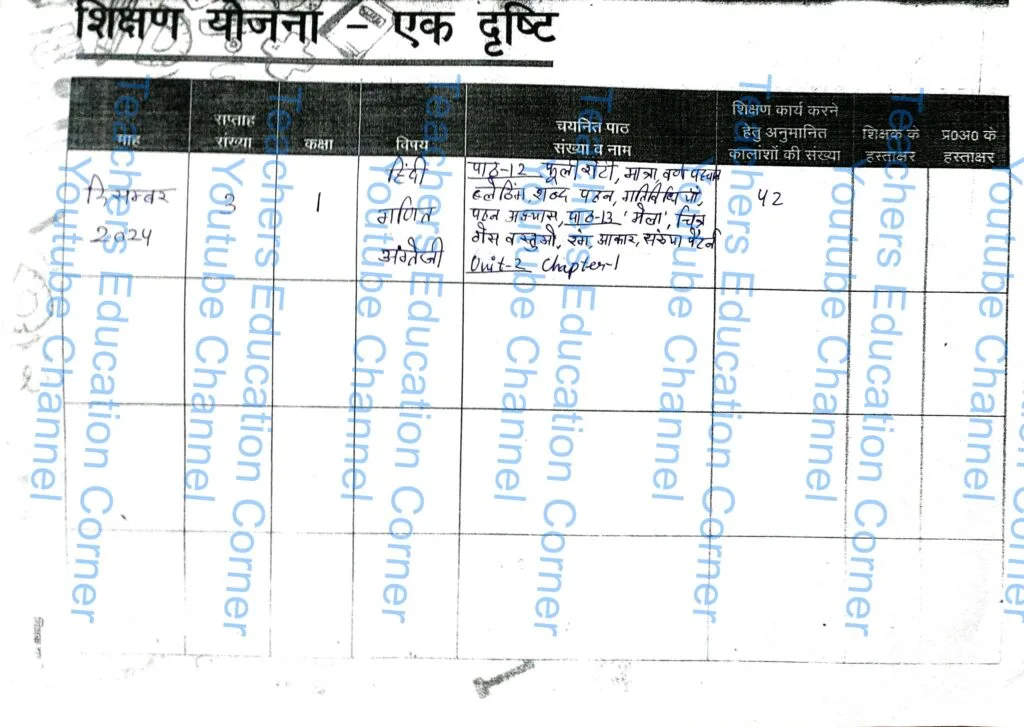 शिक्षण योजना – एक दृष्टि
माह
सप्ताह
संख्या
कक्षा
विषय
चयनित पाठ
संख्या व नाम
शिक्षण कार्य करने
हेतु अनुमानित
कालाशों की संख्या
शिक्षक के
हस्ताक्षर
प्र0अ0 के
हस्ताक्षर
दिसम्बर
2024
3
1
हिंदी
गणित
अंग्रेजी
पाठ-12 फूली रोटी, मात्रा, वर्ण पहचान
ब्लेंडिंग, शब्द पठन, गतिविधियाँ,
पठन अभ्यास, पाठ-13 'मेला', चित्र
ठोस वस्तुओं, रंग, आकार, संख्या पैटर्न
Unit-2 Chapter-1
42
Teachers Education Corner
Youtube Channel
Teachers Education Corner
Youtube Channel
Teachers Education Corner
Youtube Channel
Teachers Education Corner
Youtube Channel
Teachers Education Corner
Youtube Channel
Teachers Education Corner
Youtube Channel